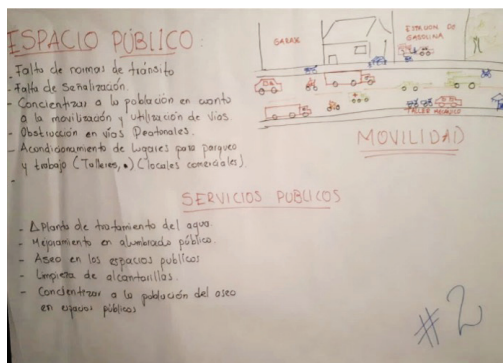 ESPACIO PÚBLICO:
- Falta de normas de tránsito
- Falta de Señalización.
- Concientizar a la población en cuanto
a la movilización y utilización de vías.
- Obstrucción en vías Peatonales.
- Acondicionamiento de Lugares para parqueo
y trabajo (Talleres, •) (locales comerciales).
-
GARAGE
ESTACION DE
GASOLINA
TALLER MECANICO
MOVILIDAD
SERVICIOS PUBLICOS
- Planta de tratamiento del agua.
- Mejoramiento en alumbrado público.
- Aseo en los espacios publicos
- Limpieza de alcantarillas.
- Concientizar a la población del aseo
en espacios públicos
#2